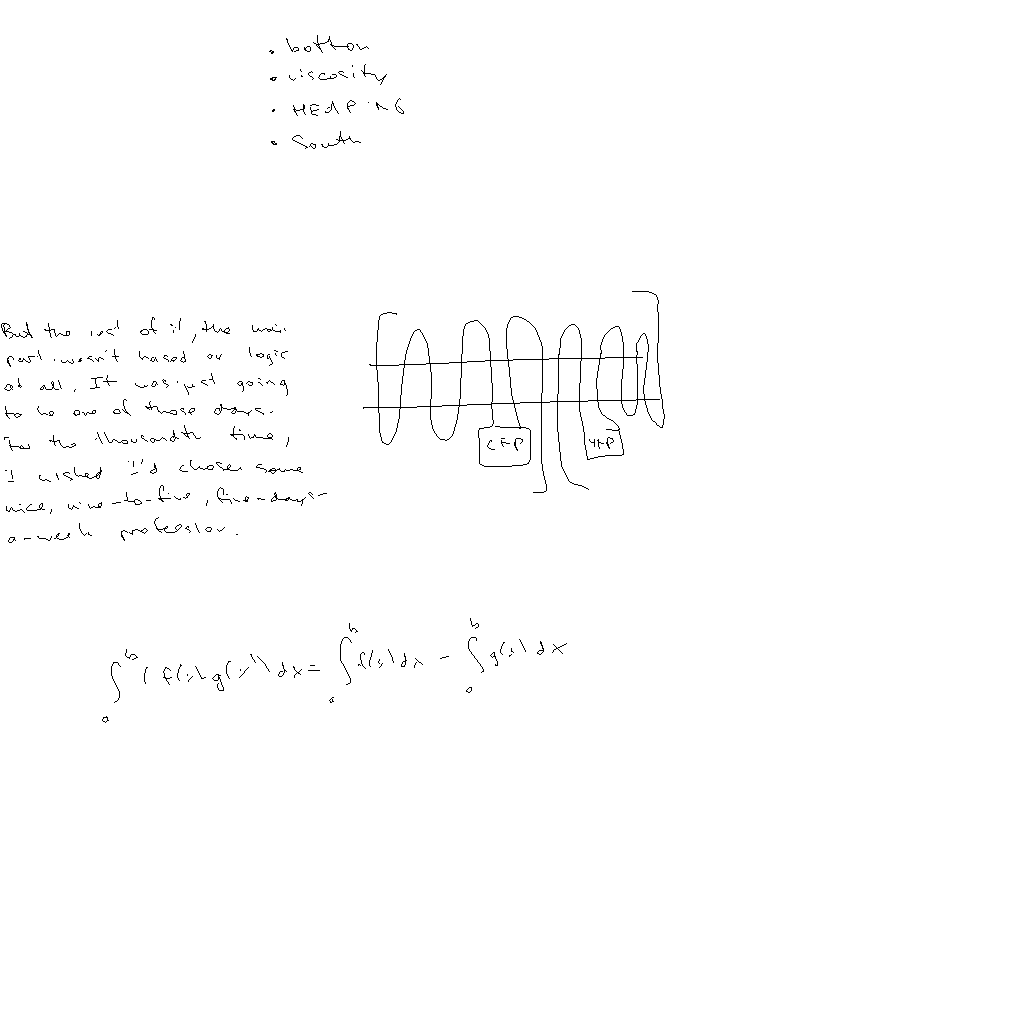 • bottom
• viscosity
• HEAPING
• South
But the rest of it, the main
part wasn't based on logic
at all. It was just going
to be one of those days.
For the thousandth time,
I wished I'd chosen some
nice, nine-to-five, five-days-
a-week profession.
CFP
YFP
∫_a^b (f(x) g(x)) dx = ∫_a^b f(x) dx - ∫_a^b g(x) dx